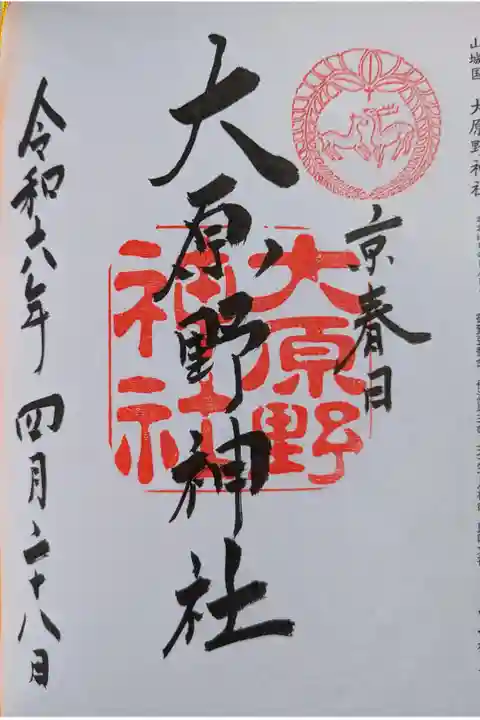 山城国 大原野神社
京春日
大原野神社
大原野
神社
令和六年 四月二十八日